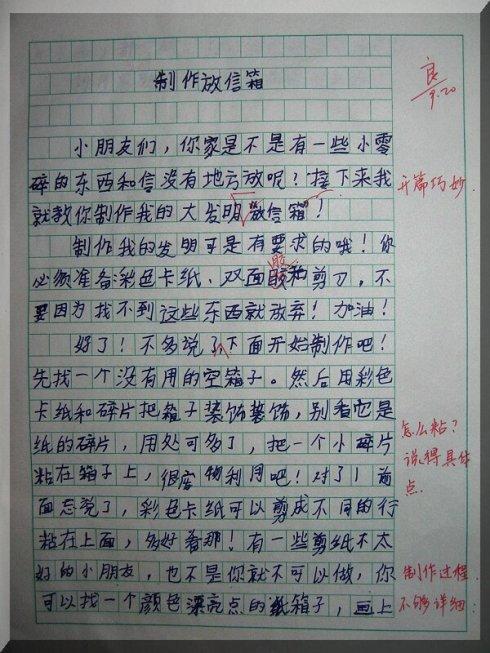 制作放信箱
良
9.20
小朋友们，你家是不是有一些小零
碎的东西和信没有地方放呢？接下来我
开篇巧妙.
就教你制作我的大发明“放信箱”！
制作我的发明可是有要求的哦！你
必须准备彩色卡纸、双面胶和剪刀，不
胶
要因为找不到这些东西就放弃！加油！
好了！不多说了下面开始制作吧！
先找一个没有用的空箱子。然后用彩色
卡纸和碎片把箱子装饰装饰，别看它是
怎么粘？
纸的碎片，用处可多了，把一个小碎片
说得具体
粘在箱子上，很废物利用吧！对了！前
点.
面忘说了，彩色卡纸可以剪成不同的行
粘在上面，多好看那！有一些剪纸不太
好的小朋友，也不是你就不可以做，你
制作过程
可以找一个颜色漂亮点的纸箱子，画上
不够详细.